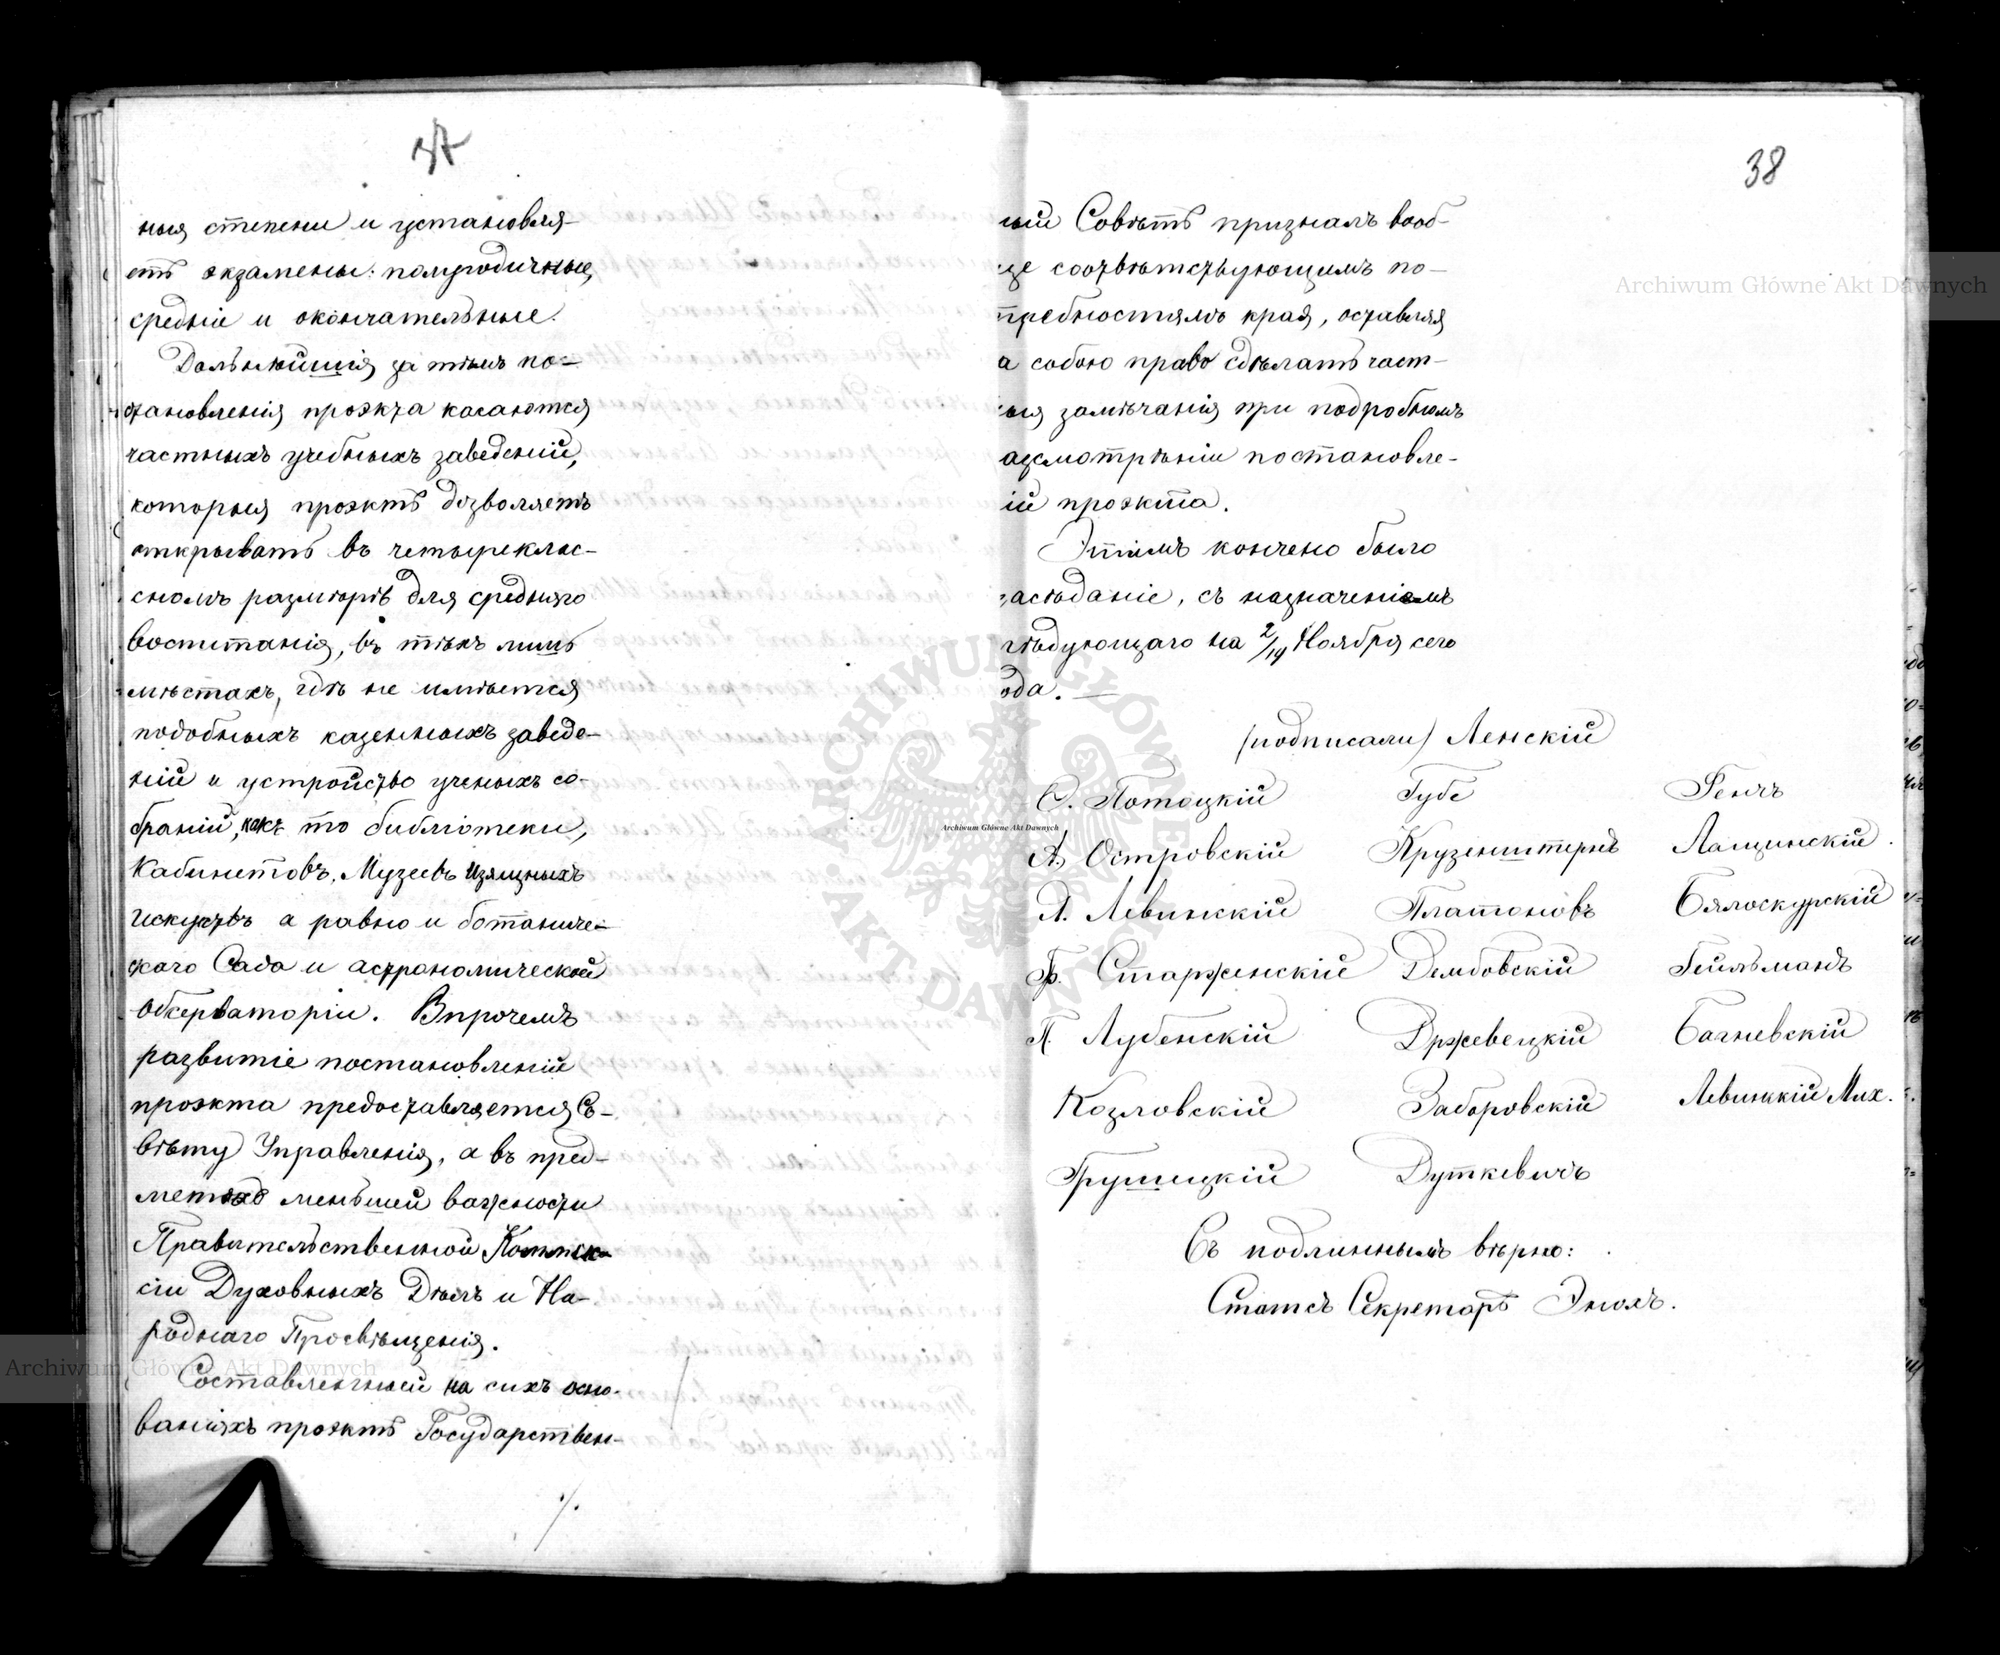 37
ныя степени и установля-
етъ экзамены: полугодичные,
средніе и окончательные.
Дальнѣйшія за тѣмъ по-
становленія проэкта касаются
частныхъ учебныхъ заведеній,
которыя проэктъ дозволяетъ
открывать въ четыреклас-
сномъ размѣрѣ для средняго
воспитанія, въ тѣхъ лишь
мѣстахъ, гдѣ не имѣется
подобныхъ казенныхъ заведе-
ній и устройство ученыхъ со-
браній, какъ то библіотеки,
Кабинетовъ, Музеевъ Изящныхъ
Искуствъ а равно и ботаниче-
скаго Сада и астрономической
Обсерваторіи. Впрочемъ
развитіе постановленій
проэкта предоставляется Со-
вѣту Управленія, а въ пред-
метахъ меньшей важности
Правительственной Коммис-
сіи Духовныхъ Дѣлъ и На-
роднаго Просвѣщенія.
Составленный на сихъ осно-
ваніяхъ проэктъ Государствен-
./.
38
ный Совѣтъ призналъ вооб-
ще соотвѣтствующимъ по-
требностямъ края, оставляя
а собою право сдѣлать част-
ныя замѣчанія при подробномъ
азсмотрѣніи постановле-
ій проэкта.
Этимъ кончено было
засѣданіе, съ назначеніемъ
слѣдующаго на 2/14 Ноября сего
ода. —
(подписали) Ленскій
С. Потоцкій Губе Генчъ
А. Островскій Крузенштернъ Лащинскій.
А. Левинскій Платоновъ Бялоскурскій
Гр. Старженскій Дембовскій Гейльманъ
П. Лубенскій Држевецкій Багневскій
Козловскій Заборовскій Левинскій Мих.
Грушецкій Дуткевичъ
Съ подлиннымъ вѣрно:
Статсъ Секретарь Энохъ.
Archiwum Główne Akt Dawnych
Archiwum Główne Akt Dawnych
Archiwum Główne Akt Dawnych
ARCHIWUM GŁÓWNE AKT DAWNYCH